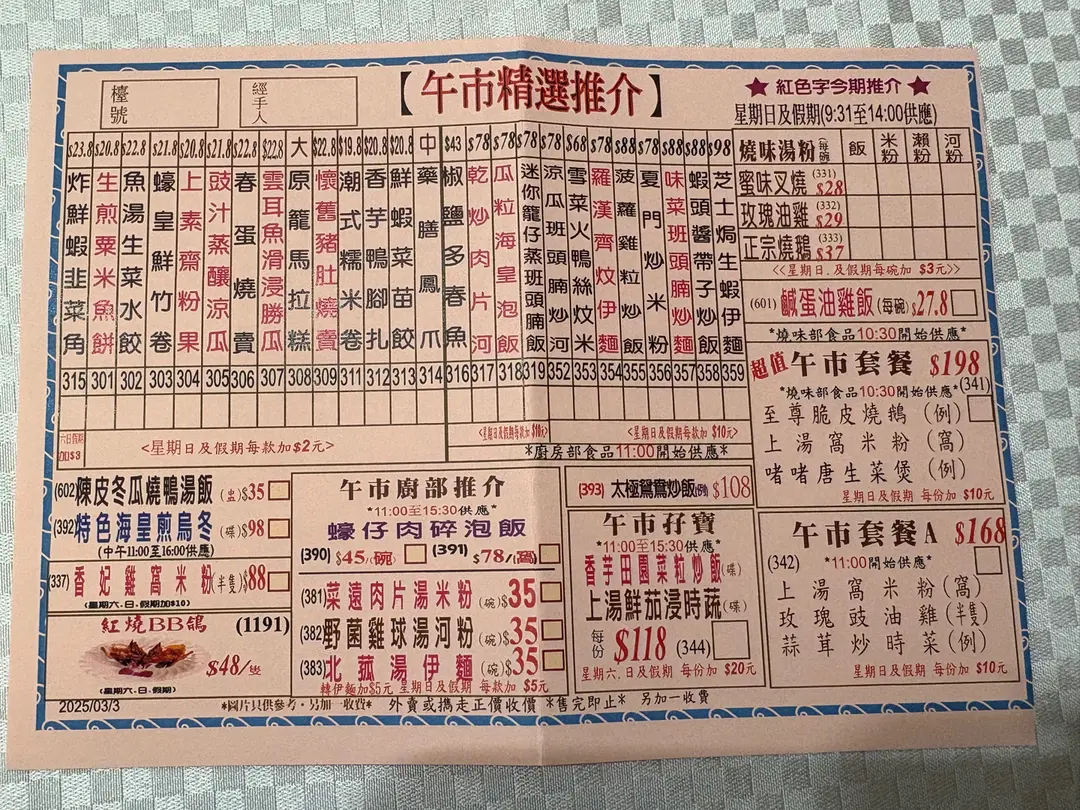 檯號
經手人
【午市精選推介】
$23.8 炸鮮蝦韭菜角 315
$20.8 生煎粟米魚餅 301
$22.8 魚湯生菜水餃 302
$21.8 蠔皇鮮竹卷 303
$20.8 上素齋粉果 304
$21.8 豉汁蒸釀涼瓜 305
$22.8 春蛋燒賣 306
$22.8 雲耳魚滑浸勝瓜 307
大 原籠馬拉糕 308
$22.8 懷舊豬肚燒賣 309
$19.8 潮式糯米卷 311
$20.8 香芋鴨腳扎 312
$20.8 鮮蝦菜苗餃 313
中 藥膳鳳爪 314
$43 椒鹽多春魚 316
$78 乾炒肉片河 317
$78 瓜粒海皇泡飯 318
$78 迷你籠仔蒸班頭腩飯 319
$78 涼瓜班頭腩炒飯 352
$68 雪菜火鴨絲炆米 353
$78 羅漢齊炆伊麵 354
$88 菠蘿雞粒炒飯 355
$78 夏門炒米粉 356
$88 味菜班頭腩炒麵 357
$88 蝦頭醬帶子炒飯 358
$98 芝士焗生蝦伊麵 359
六日假期加$3
<星期日及假期每款加 $2元>
<星期日及假期每款加 $10元>
<星期日及假期每款加 $10元>
*廚房部食品11:00開始供應*
★ 紅色字今期推介 ★
星期日及假期(9:31至14:00供應)
燒味湯粉(每碗) 飯 米粉 瀨粉 河粉
蜜味叉燒 (331) $28
玫瑰油雞 (332) $29
正宗燒鵝 (333) $37
<<星期日.及假期每碗加 $3元>>
(601) 鹹蛋油雞飯 (每碗) $27.8
*燒味部食品10:30開始供應*
超值 午市套餐 $198
*燒味部食品10:30開始供應* (341)
至尊脆皮燒鵝 (例)
上湯窩米粉 (窩)
啫啫唐生菜煲 (例)
星期日及假期 每份加 $10元
(602)陳皮冬瓜燒鴨湯飯(盅)$35
(392)特色海皇煎烏冬(碟)$98
(中午11:00至16:00供應)
(337)香妃雞窩米粉(半隻)$88
(星期六.日.假期加$10)
紅燒BB鴿 (1191)
$48/隻
(星期六.日.假期)
午市廚部推介
*11:00至15:30供應*
蠔仔肉碎泡飯
(390) $45/(碗) (391) $78/(窩)
(381)菜遠肉片湯米粉(碗)$35
(382)野菌雞球湯河粉(碗)$35
(383)北菰湯伊麵(碗)$35
轉伊麵加$5元 星期日及假期 每款加 $5元
(393) 太極鴛鴦炒飯(例) $108
午市孖寶
*11:00至15:30供應*
香芋田園菜粒炒飯(碟)
上湯鮮茄浸時蔬(碟)
每份 $118 (344)
星期六.日及假期 每份加 $20元
午市套餐A $168
(342) *11:00開始供應*
上湯窩米粉(窩)
玫瑰豉油雞(半隻)
蒜茸炒時菜(例)
星期日及假期 每份加 $10元
2025/03/3 *圖片只供參考·另加一收費* 外賣或攜走正價收價 *售完即止* 另加一收費